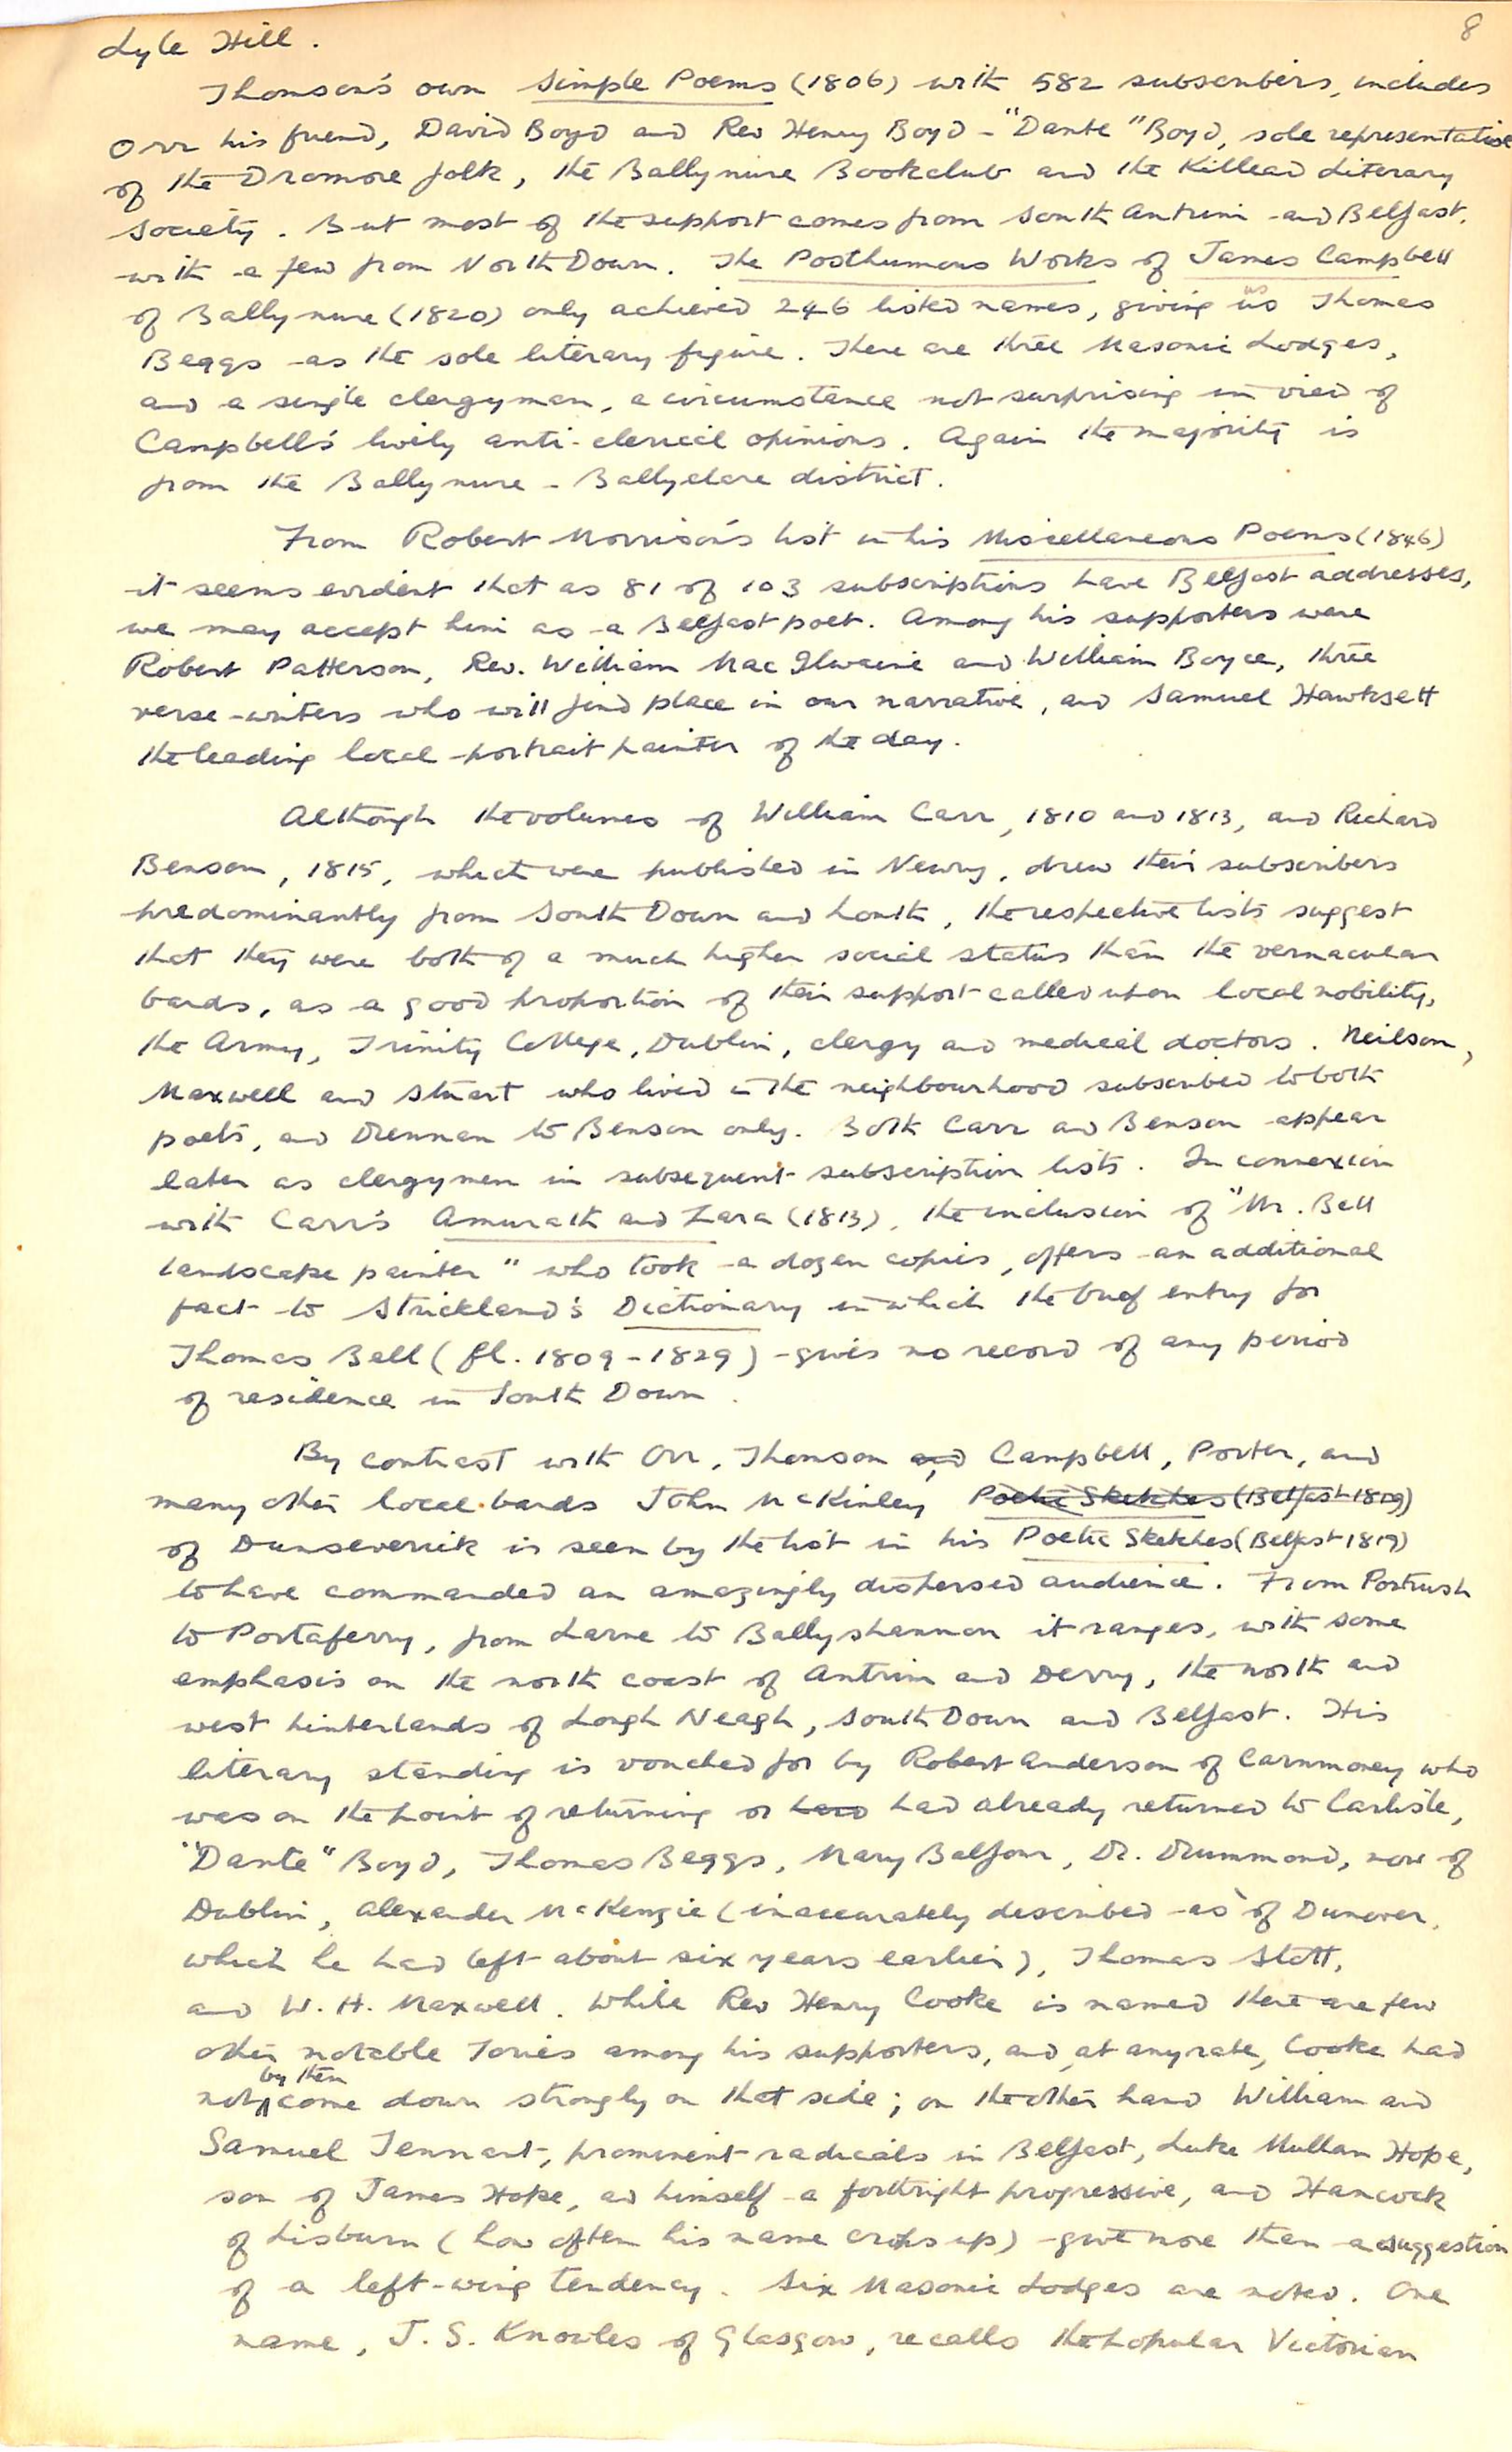 8
Lyle Hill.
Thomson's own Simple Poems (1806) with 582 subscribers, includes
Orr his friend, David Boyd and Rev Henry Boyd - "Dante" Boyd, sole representative
of the Dromore folk, the Ballynure Bookclub and the Killead Literary
Society. But most of the support comes from South Antrim and Belfast,
with a few from North Down. The Posthumous Works of James Campbell
of Ballynure (1820) only achieved 246 listed names, giving us Thomas
Beggs as the sole literary figure. There are three Masonic Lodges,
and a single clergyman, a circumstance not surprising in view of
Campbell's lively anti-clerical opinions. Again the majority is
from the Ballynure - Ballyclare district.
From Robert Morrison's list in his Miscellaneous Poems (1846)
it seems evident that as 81 of 103 subscriptions have Belfast addresses,
we may accept him as a Belfast poet. Among his supporters were
Robert Patterson, Rev. William MacIlwaine and William Boyce, three
verse-writers who will find place in our narrative, and Samuel Hawksett
the leading local portrait painter of the day.
Although the volumes of William Carr, 1810 and 1813, and Richard
Benson, 1815, which were published in Newry, drew their subscribers
predominantly from South Down and Louth, the respective lists suggest
that they were both of a much higher social status than the vernacular
bards, as a good proportion of their support called upon local nobility,
the Army, Trinity College, Dublin, clergy and medical doctors. Neilson,
Maxwell and Stuart who lived in the neighbourhood subscribed to both
poets, and Drennan to Benson only. Both Carr and Benson appear
later as clergymen in subsequent subscription lists. In connexion
with Carr's Amurath and Zara (1813), the inclusion of "Mr. Bell
landscape painter" who took a dozen copies, offers an additional
fact to Strickland's Dictionary in which the brief entry for
Thomas Bell (fl. 1809-1829) gives no record of any period
of residence in South Down.
By contrast with Orr, Thomson and Campbell, Porter, and
many other local bards John McKinley Poetic Sketches (Belfast 1819)
of Dunseverick is seen by the list in his Poetic Sketches (Belfast 1819)
to have commanded an amazingly dispersed audience. From Portrush
to Portaferry, from Larne to Ballyshannon it ranges, with some
emphasis on the north coast of Antrim and Derry, the north and
west hinterlands of Lough Neagh, South Down and Belfast. His
literary standing is vouched for by Robert Anderson of Carnmoney who
was on the point of returning or had already returned to Carlisle,
"Dante" Boyd, Thomas Beggs, Mary Balfour, Dr. Drummond, now of
Dublin, Alexander McKenzie (inaccurately described as of Dunover,
which he had left about six years earlier), Thomas Stott,
and W. H. Maxwell. While Rev Henry Cooke is named there are few
other notable Tories among his supporters, and, at any rate, Cooke had
not by then come down strongly on that side; on the other hand William and
Samuel Tennent, prominent radicals in Belfast, Luke Mullan Hope,
son of James Hope, and himself a forthright progressive, and Hancock
of Lisburn (how often his name crops up) give more than a suggestion
of a left-wing tendency. Six Masonic Lodges are noted. One
name, J. S. Knowles of Glasgow, recalls the popular Victorian